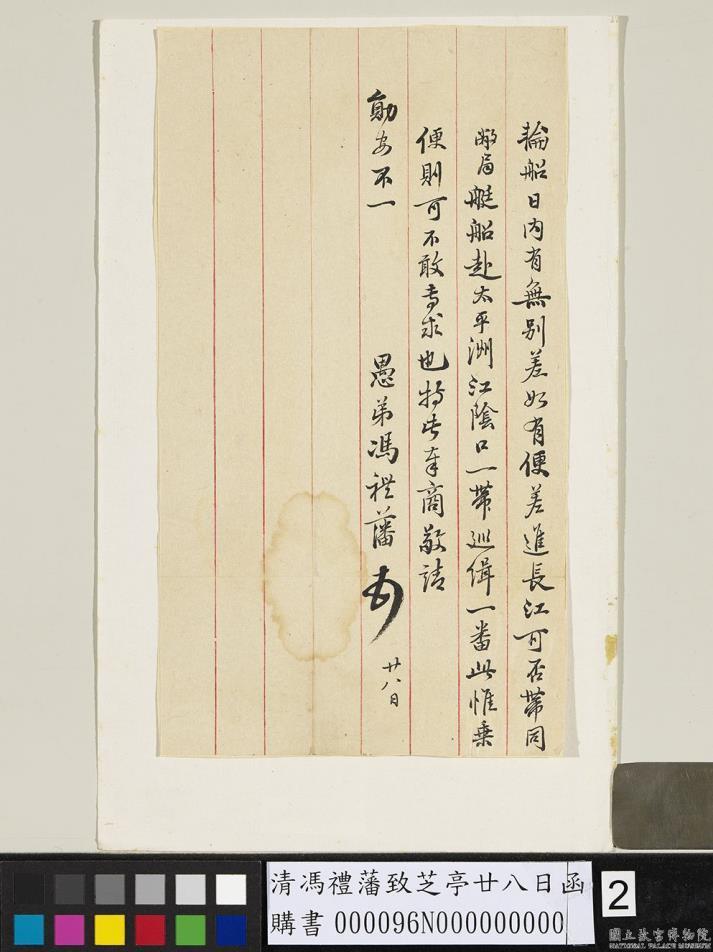 輪船日内有無別差如有便差進長江可否帶同
敝局艇船赴太平洲江陰口一帶巡緝一番此惟乗
便則可不敢専求也特此奉商敬請
勛安不一
愚弟馮禮藩
廿八日
清馮禮藩致芝亭廿八日函
購書 000096N000000000
2
國立故宮博物院
NATIONAL PALACE MUSEUM